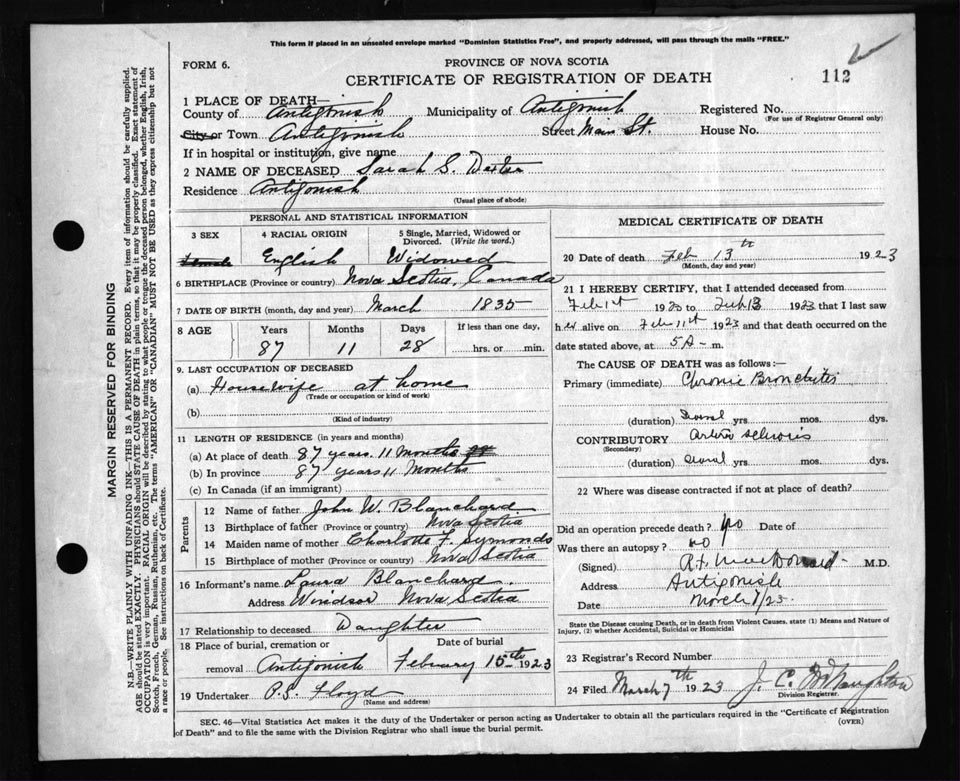 This form if placed in an unsealed envelope marked "Dominion Statistics Free", and properly addressed, will pass through the mails "FREE."
FORM 6.
PROVINCE OF NOVA SCOTIA
CERTIFICATE OF REGISTRATION OF DEATH
112
1 PLACE OF DEATH
County of Antigonish Municipality of Antigonish Registered No.
(For use of Registrar General only)
City or Town Antigonish Street Main St. House No.
If in hospital or institution, give name
2 NAME OF DECEASED Sarah S. Dexter
Residence Antigonish
(Usual place of abode)
PERSONAL AND STATISTICAL INFORMATION
3 SEX 4 RACIAL ORIGIN 5 Single, Married, Widowed or Divorced. (Write the word.)
Female English Widowed
6 BIRTHPLACE (Province or country) Nova Scotia, Canada
7 DATE OF BIRTH (month, day and year) March 1835
8 AGE Years Months Days If less than one day,
87 11 28 hrs. or min.
9. LAST OCCUPATION OF DECEASED
(a) Housewife at home
(Trade or occupation or kind of work)
(b)
(Kind of industry)
11 LENGTH OF RESIDENCE (in years and months)
(a) At place of death 87 years. 11 Months
(b) In province 87 years 11 Months
(c) In Canada (if an immigrant)
Parents
12 Name of father John W. Blanchard
13 Birthplace of father (Province or country) Nova Scotia
14 Maiden name of mother Charlotte F. Symonds
15 Birthplace of mother (Province or country) Nova Scotia
16 Informant's name Laura Blanchard.
Address Windsor Nova Scotia
17 Relationship to deceased Daughter
18 Place of burial, cremation or removal Date of burial
Antigonish Februry 15th 1923
19 Undertaker P.S. Floyd
(Name and address)
MEDICAL CERTIFICATE OF DEATH
20 Date of death Feb 13th 1923
(Month, day and year)
21 I HEREBY CERTIFY, that I attended deceased from
Feb 1st 1923 to Feb 13 1923 that I last saw
her alive on Feb 11th 1923 and that death occurred on the
date stated above, at 5 A-m.
The CAUSE OF DEATH was as follows:—
Primary (immediate) Chronic Bronchitis
(duration) yrs. mos. dys.
CONTRIBUTORY
(Secondary)
(duration) yrs. mos. dys.
22 Where was disease contracted if not at place of death?
Did an operation precede death? No Date of
Was there an autopsy? no
(Signed) MacDonald M.D.
Address Antigonish
Date March 7/23
State the Disease causing Death, or in death from Violent Causes, state (1) Means and Nature of
Injury, (2) whether Accidental, Suicidal or Homicidal
23 Registrar's Record Number
24 Filed March 7th 1923 J. C.
Division Registrar.
SEC. 46—Vital Statistics Act makes it the duty of the Undertaker or person acting as Undertaker to obtain all the particulars required in the "Certificate of Registration
of Death" and to file the same with the Division Registrar who shall issue the burial permit.
(OVER)
MARGIN RESERVED FOR BINDING
N.B.—WRITE PLAINLY WITH UNFADING INK—THIS IS A PERMANENT RECORD. Every item of information should be carefully supplied.
AGE should be stated EXACTLY. PHYSICIANS should STATE CAUSE OF DEATH in plain terms, so that it may be properly classified. Exact statement of
OCCUPATION is very important. RACIAL ORIGIN will be described by stating to what people or tongue the deceased person belonged, whether English, Irish,
Scotch, French, German, Russian, Ruthenian, etc. The terms "AMERICAN" or "CANADIAN" MUST NOT BE USED as they express citizenship but not
a race or people. See instructions on back of Certificate.